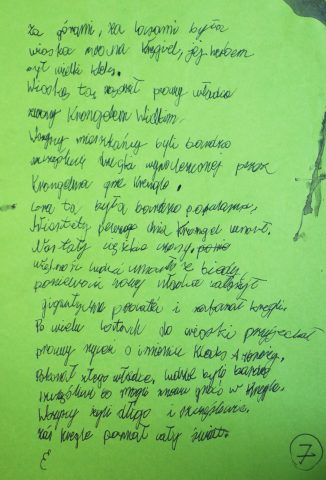 Za górami, za lasami była
wioska zwana Kręgiel, jej herbem
był wielki
Wioską tą rządził prawy władca
zwany Krongelem Wielkim.
Wszyscy mieszkańcy byli bardzo
szczęśliwi dzięki wynalezionej przez
Krongelema grze kręgle.
Gra ta była bardzo popularna,
Niestety pewnego dnia Krongel umarł.
Nastały ciężkie czasy.
większość ludzi umarła z biedy,
ponieważ nowy władca nałożył
gigantyczne podatki i zabronił kręgli.
Po wielu latach do wioski przyjechał
prawy rycerz o imieniu
Pokonał złego władcę, ludzie byli bardzo
szczęśliwi bo mogli znowu grać w kręgle.
Wszyscy żyli długo i szczęśliwie.
Zaś kręgle poznał cały świat.
7